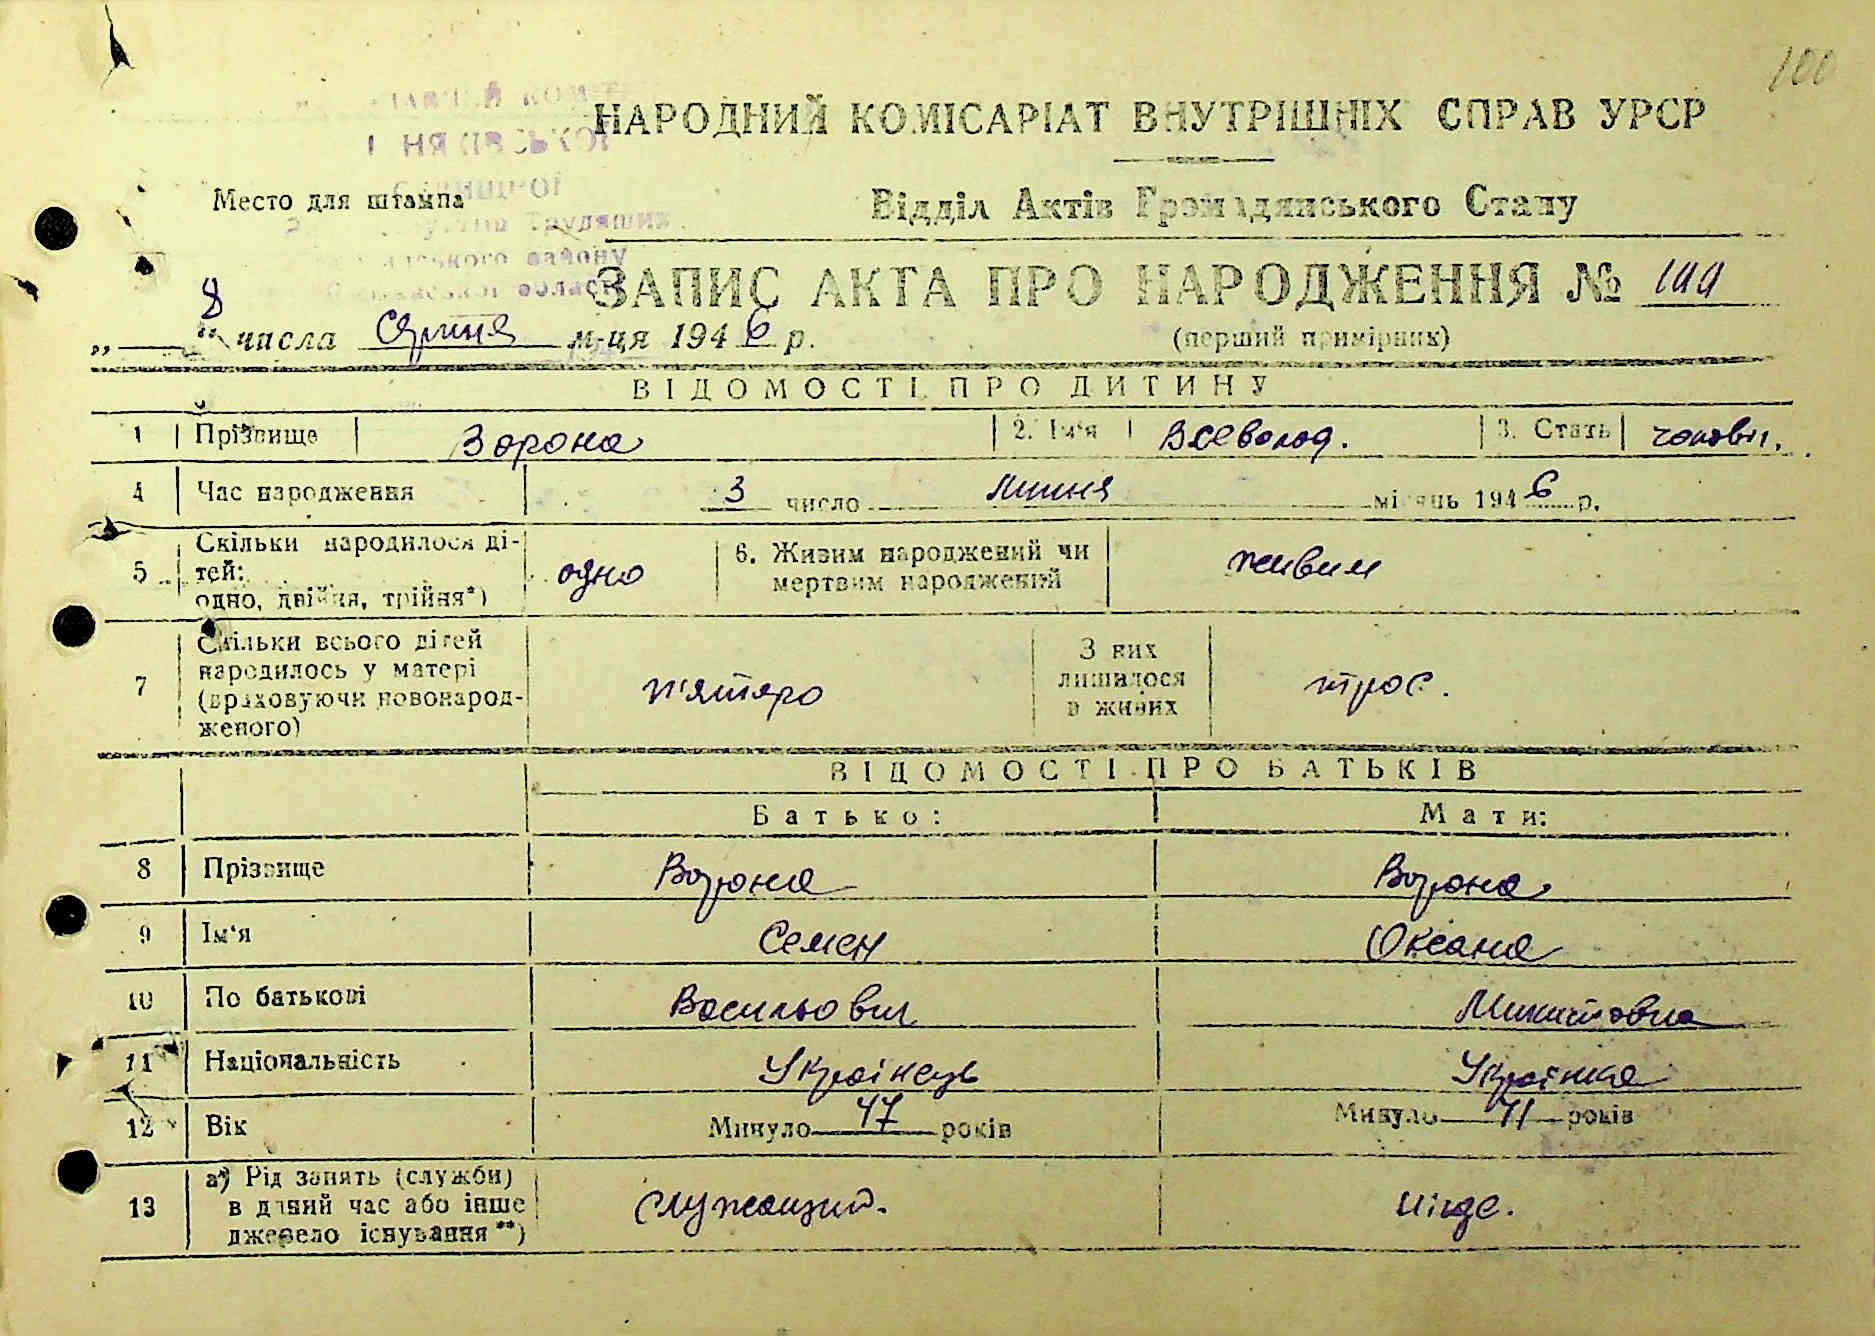 100
НАРОДНИЙ КОМІСАРІАТ ВНУТРІШНІХ СПРАВ УРСР
Место для штампа
Відділ Актів Громадянського Стану
Трудящих
району
області
ЗАПИС АКТА ПРО НАРОДЖЕННЯ №
„ 8 “ числа Серпня м-ця 1946 р.
(перший примірник)
ВІДОМОСТІ ПРО ДИТИНУ
1 Прізвище Ворона 2. Ім‘я Всеволод. 3. Стать чоловіч.
4 Час народження 3 число Липня місяць 1946 р.
5 Скільки народилося ді-
тей:
одно, двійня, трійня*) одно 6. Живим народжений чи
мертвим народжений живим
7 Скільки всього дітей
народилось у матері
(враховуючи новонарод-
женого) п'ятеро З них
лишилося
в живих троє.
ВІДОМОСТІ ПРО БАТЬКІВ
Батько: Мати:
8 Прізвище Ворона Ворона
9 Ім‘я Семен Оксана
10 По батькові Васильович Микитовна
11 Національність Українець Українка
12 Вік Минуло 47 років Минуло 41 років
13 а) Рід занять (служби)
в даний час або інше
джерело існування **) служащий. нігде.